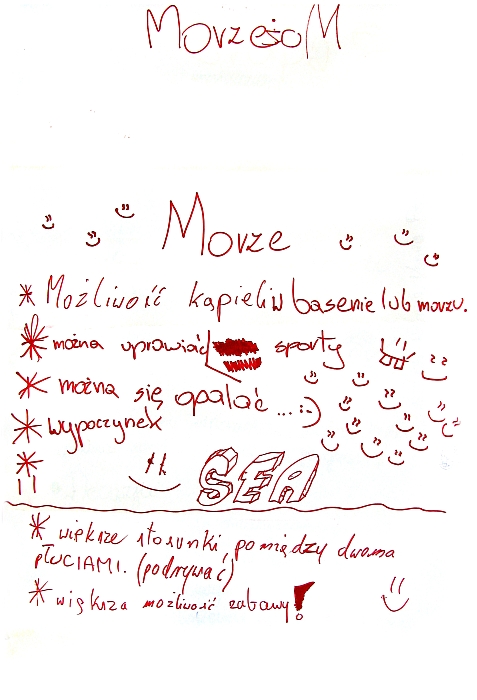 Morze
Możliwość kąpieli w basenie lub morzu.
można uprawiać sporty
można się opalać ... :-)
wypoczynek
SEA
większe stosunki pomiędzy dwoma
płUCIAMI. (podrywać)
większa możliwość zabawy!